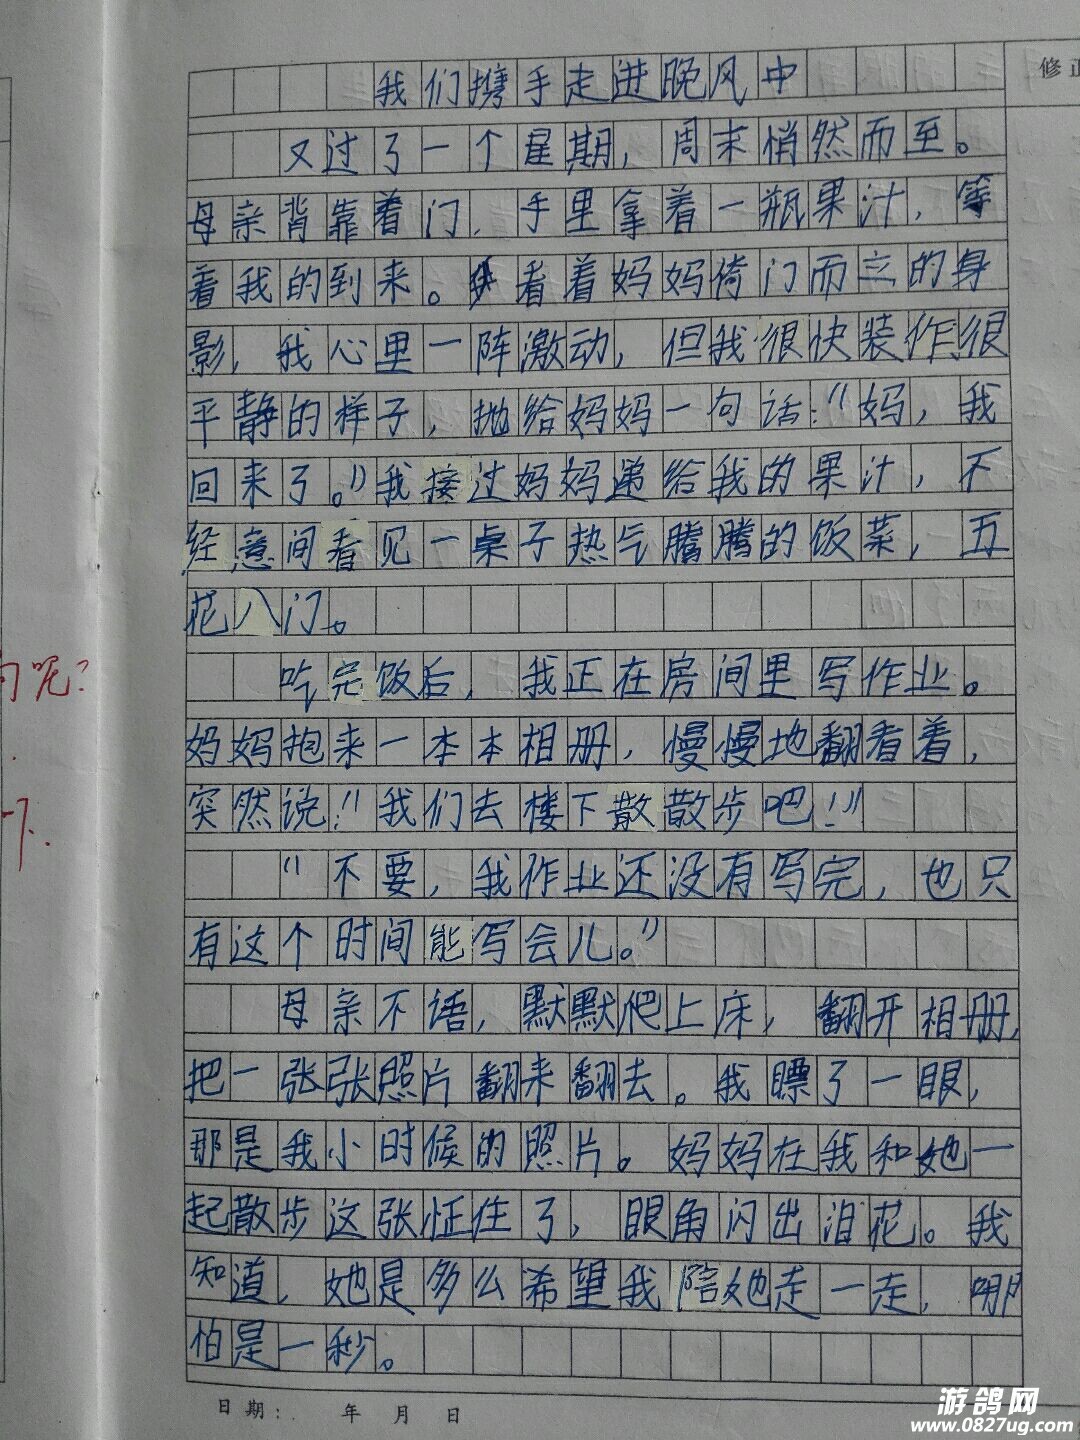 修正
我们携手走进晚风中
又过了一个星期，周末悄然而至。
母亲背靠着门，手里拿着一瓶果汁，等
着我的到来。看着妈妈倚门而立的身
影，我心里一阵激动，但我很快装作很
平静的样子，抛给妈妈一句话："妈，我
回来了。"我接过妈妈递给我的果汁，不
经意间看见一桌子热气腾腾的饭菜，五
花八门。
吃完饭后，我正在房间里写作业。
妈妈抱来一本本相册，慢慢地翻看着，
突然说："我们去楼下散散步吧！"
"不要，我作业还没有写完，也只
有这个时间能写会儿。"
母亲不语，默默爬上床，翻开相册，
把一张张照片翻来翻去。我瞟了一眼，
那是我小时候的照片。妈妈在我和她一
起散步这张怔住了，眼角闪出泪花。我
知道，她是多么希望我陪她走一走，哪
怕是一秒。
呢？
下.
日期： 年 月 日
游鸽网
www.0827ug.com